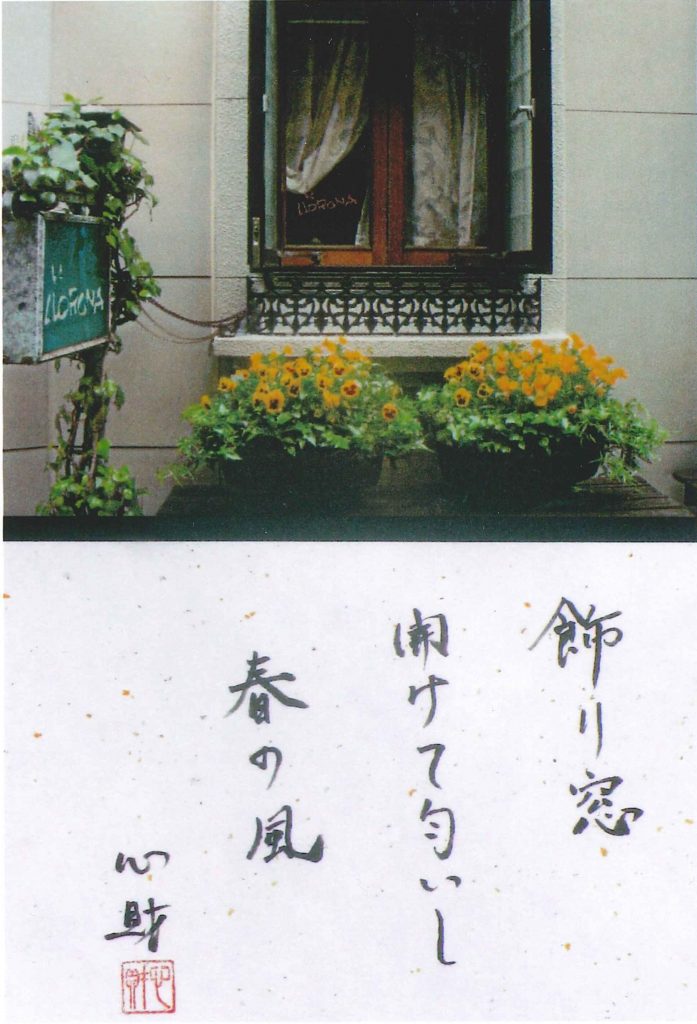 LLORONA
LLORONA
飾り窓
開けて匂いし
春の風
心財